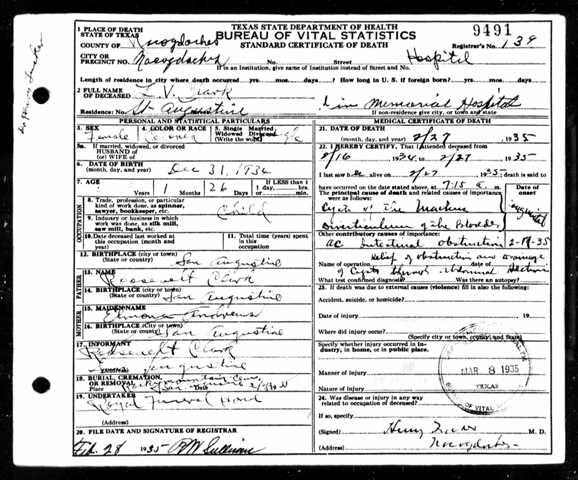 TEXAS STATE DEPARTMENT OF HEALTH
BUREAU OF VITAL STATISTICS
STANDARD CERTIFICATE OF DEATH
9491
1 PLACE OF DEATH
STATE OF TEXAS
COUNTY OF Nacogdoches
Registrar's No. 139
CITY OR
PRECINCT NO. Nacogdoches No. Street Hospital
If in an Institution, give name of Institution instead of Street and No.
Length of residence in city where death occurred yrs. mos. days. How long in U. S. if foreign born? yrs. mos. days.
2 FULL NAME OF DECEASED L. V. Clark
Residence: No. St Augustine Memorial Hospital
If non-residence give city, or town and state
PERSONAL AND STATISTICAL PARTICULARS
3. SEX Female
4. COLOR OR RACE
5. Single Married
5a. If married, widowed, or divorced
HUSBAND OF
(or) WIFE OF
6. DATE OF BIRTH
(month, day, and year) Dec 31, 193
7. AGE Years Months Days If LESS than
1 26
OCCUPATION
8. Trade, profession, or particular
kind of work done, as spinner,
sawyer, bookkeeper, etc. Child
9. Industry or business in which
work was done, as silk mill,
saw mill, bank, etc.
10. Date deceased last worked at
this occupation (month and
year)
11. Total time (years)
spent in this
occupation
12. BIRTHPLACE (city or town)
(State or country) San Augustine
FATHER
13. NAME Roosevelt Clark
14. BIRTHPLACE (City or town)
(State or country) San Augustine
MOTHER
15. MAIDEN NAME Andrews
16. BIRTHPLACE (City or town)
(State or country) San Augustine
17. INFORMANT
Roosevelt Clark
San Augustine
18. BURIAL, CREMATION,
OR REMOVAL
Place Date
19. UNDERTAKER
Royal Funeral Home
20. FILE DATE AND SIGNATURE OF REGISTRAR
Feb. 28 1935
MEDICAL
21. DATE OF DEATH
(month, day, and year) 2/27 1935
22. I HEREBY CERTIFY, That I attended deceased from
2/16 to 2/27 1935
I last saw h alive on 2/27 1935 death is said to
have occurred on the date stated above, at 7:15 m.
The principal cause of death and related causes of importance
were as follows:
Date of
onset
Diverticulum of the Bladder
Other contributory causes of importance:
ac Intestinal obstruction
Name of operation Relief of obstruction and drainage
of Cysts through abdominal
What test confirmed diagnosis? Was there an
23. If death was due to external causes (violence) fill in also the
following:
Accident, suicide, or homicide?
Date of injury 19
Where did injury occur?
(Specify city, town, county, and State)
Specify whether injury occurred in In-
dustry, in home, or in public place.
Manner of injury
Nature of injury
MAR 8 1935
TEXAS
BUREAU OF VITAL
24. Was disease or injury in any way
related to occupation of deceased?
If so, specify
(Signed) M. D.
(Address) Nacogdoches